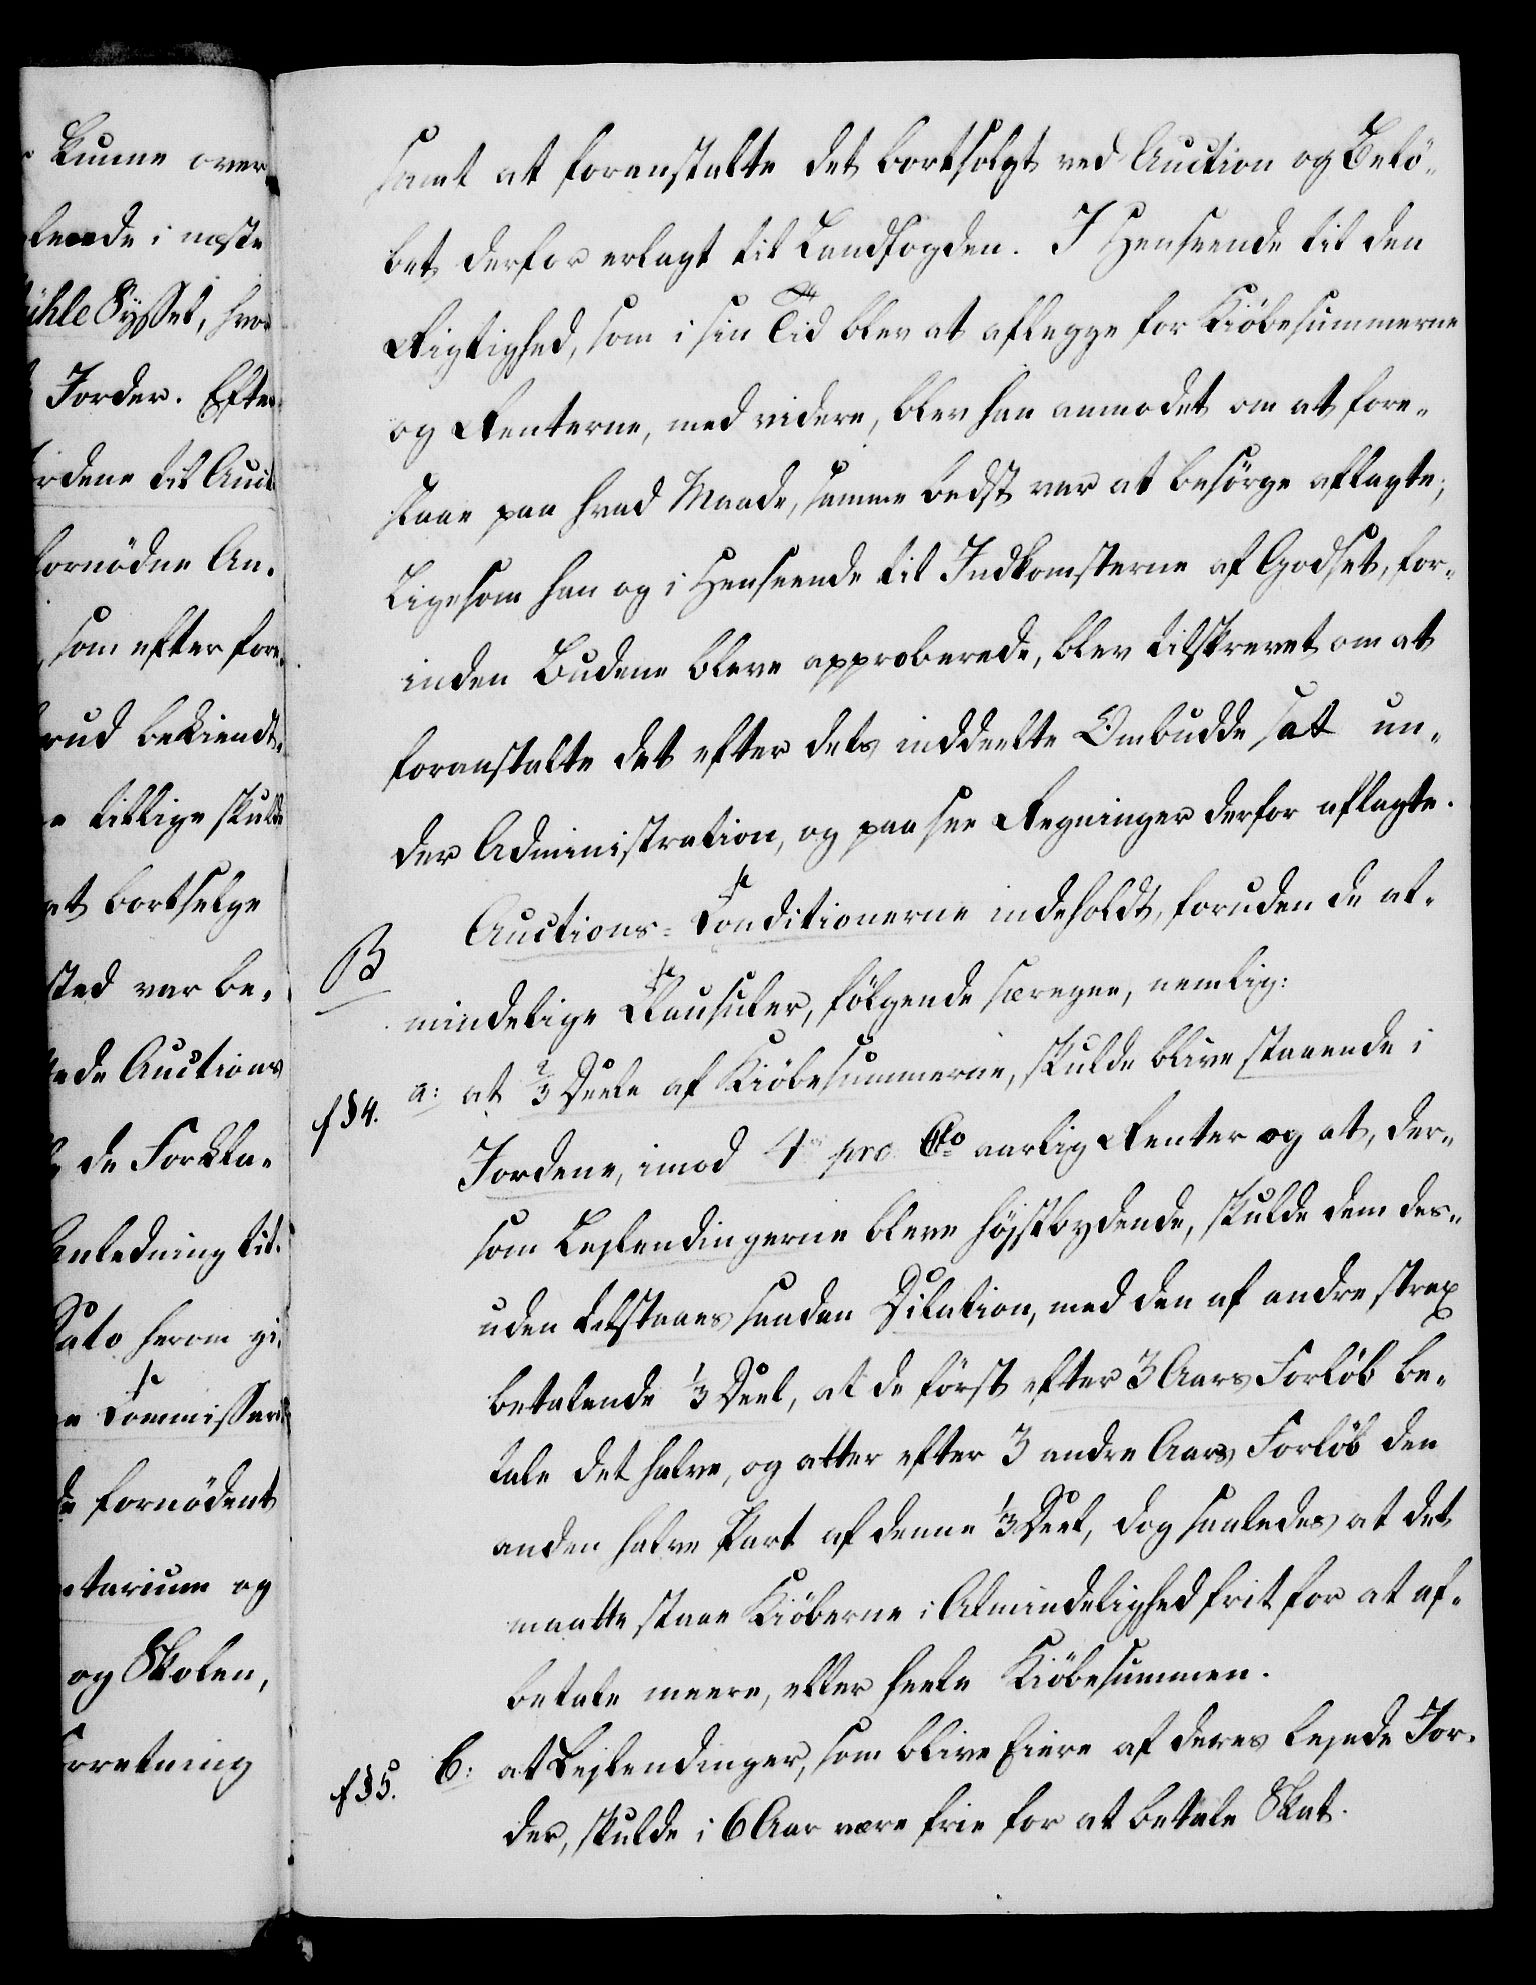 Kunne over
leede i næste
ühle Sysset, hvor
Jorder. Efter
rdene til Auct
fornödne An-
, som efter fore-
rud bekiendt-
e tillige skulde
at bortsælge
sted var be-
ede Auctions
de Forkla-
Anledning til
Dato herom gi-
e Commissari
de fornödent
etarium og
og Skolen,
orretning
samt at foranstalte det bortsolgt ved Auction og Belö-
bet derfor erlagt til Landfogden. I Henseende til den
Rigtighed, som i sin Tid blev at aflegge for Kiöbesummerne
og Renterne, med videre, blev han anmodet om at fore-
slaae paa hvad Maade, samme bedst var at besörge aflagte;
Ligesom han og i Henseende til Indkomsterne af Godset, for-
inden Budene bleve approberede, blev tilskrevet om at
foranstalte det efter dets inddeelte Ombudde sat un-
der Administration, og paasee Regninger derfor aflagte.
B
Auctions-Conditionerne indeholdt, foruden de al-
mindelige Clausuler, fölgende særegne, nemlig:
f §4.
a: at 2/3 Deele af Kiöbesummerne, skulde blive staaende i
Jordene, imod 4 pro Cto aarlig Renter og at, der-
som Leylendingerne bleve höjstbydende, skulde dem des-
uden tilstaaes saadan Dilation, med den af andre strax
betalende 1/3 Deel, at de först efter 3 Aars Forlöb be-
tale det halve, og atter efter 3 andre Aars Forlöb den
anden halve Part af denne 1/3 Deel, dog saaledes at det
maatte staae Kiöberne i Almindelighed frit for at af-
betale meere, eller heele Kiöbesummen.
f §5.
b: at Leylendinger, som blive Eiere af deres lejede Jor-
der, skulde i 6 Aar være frie for at betale Skat.